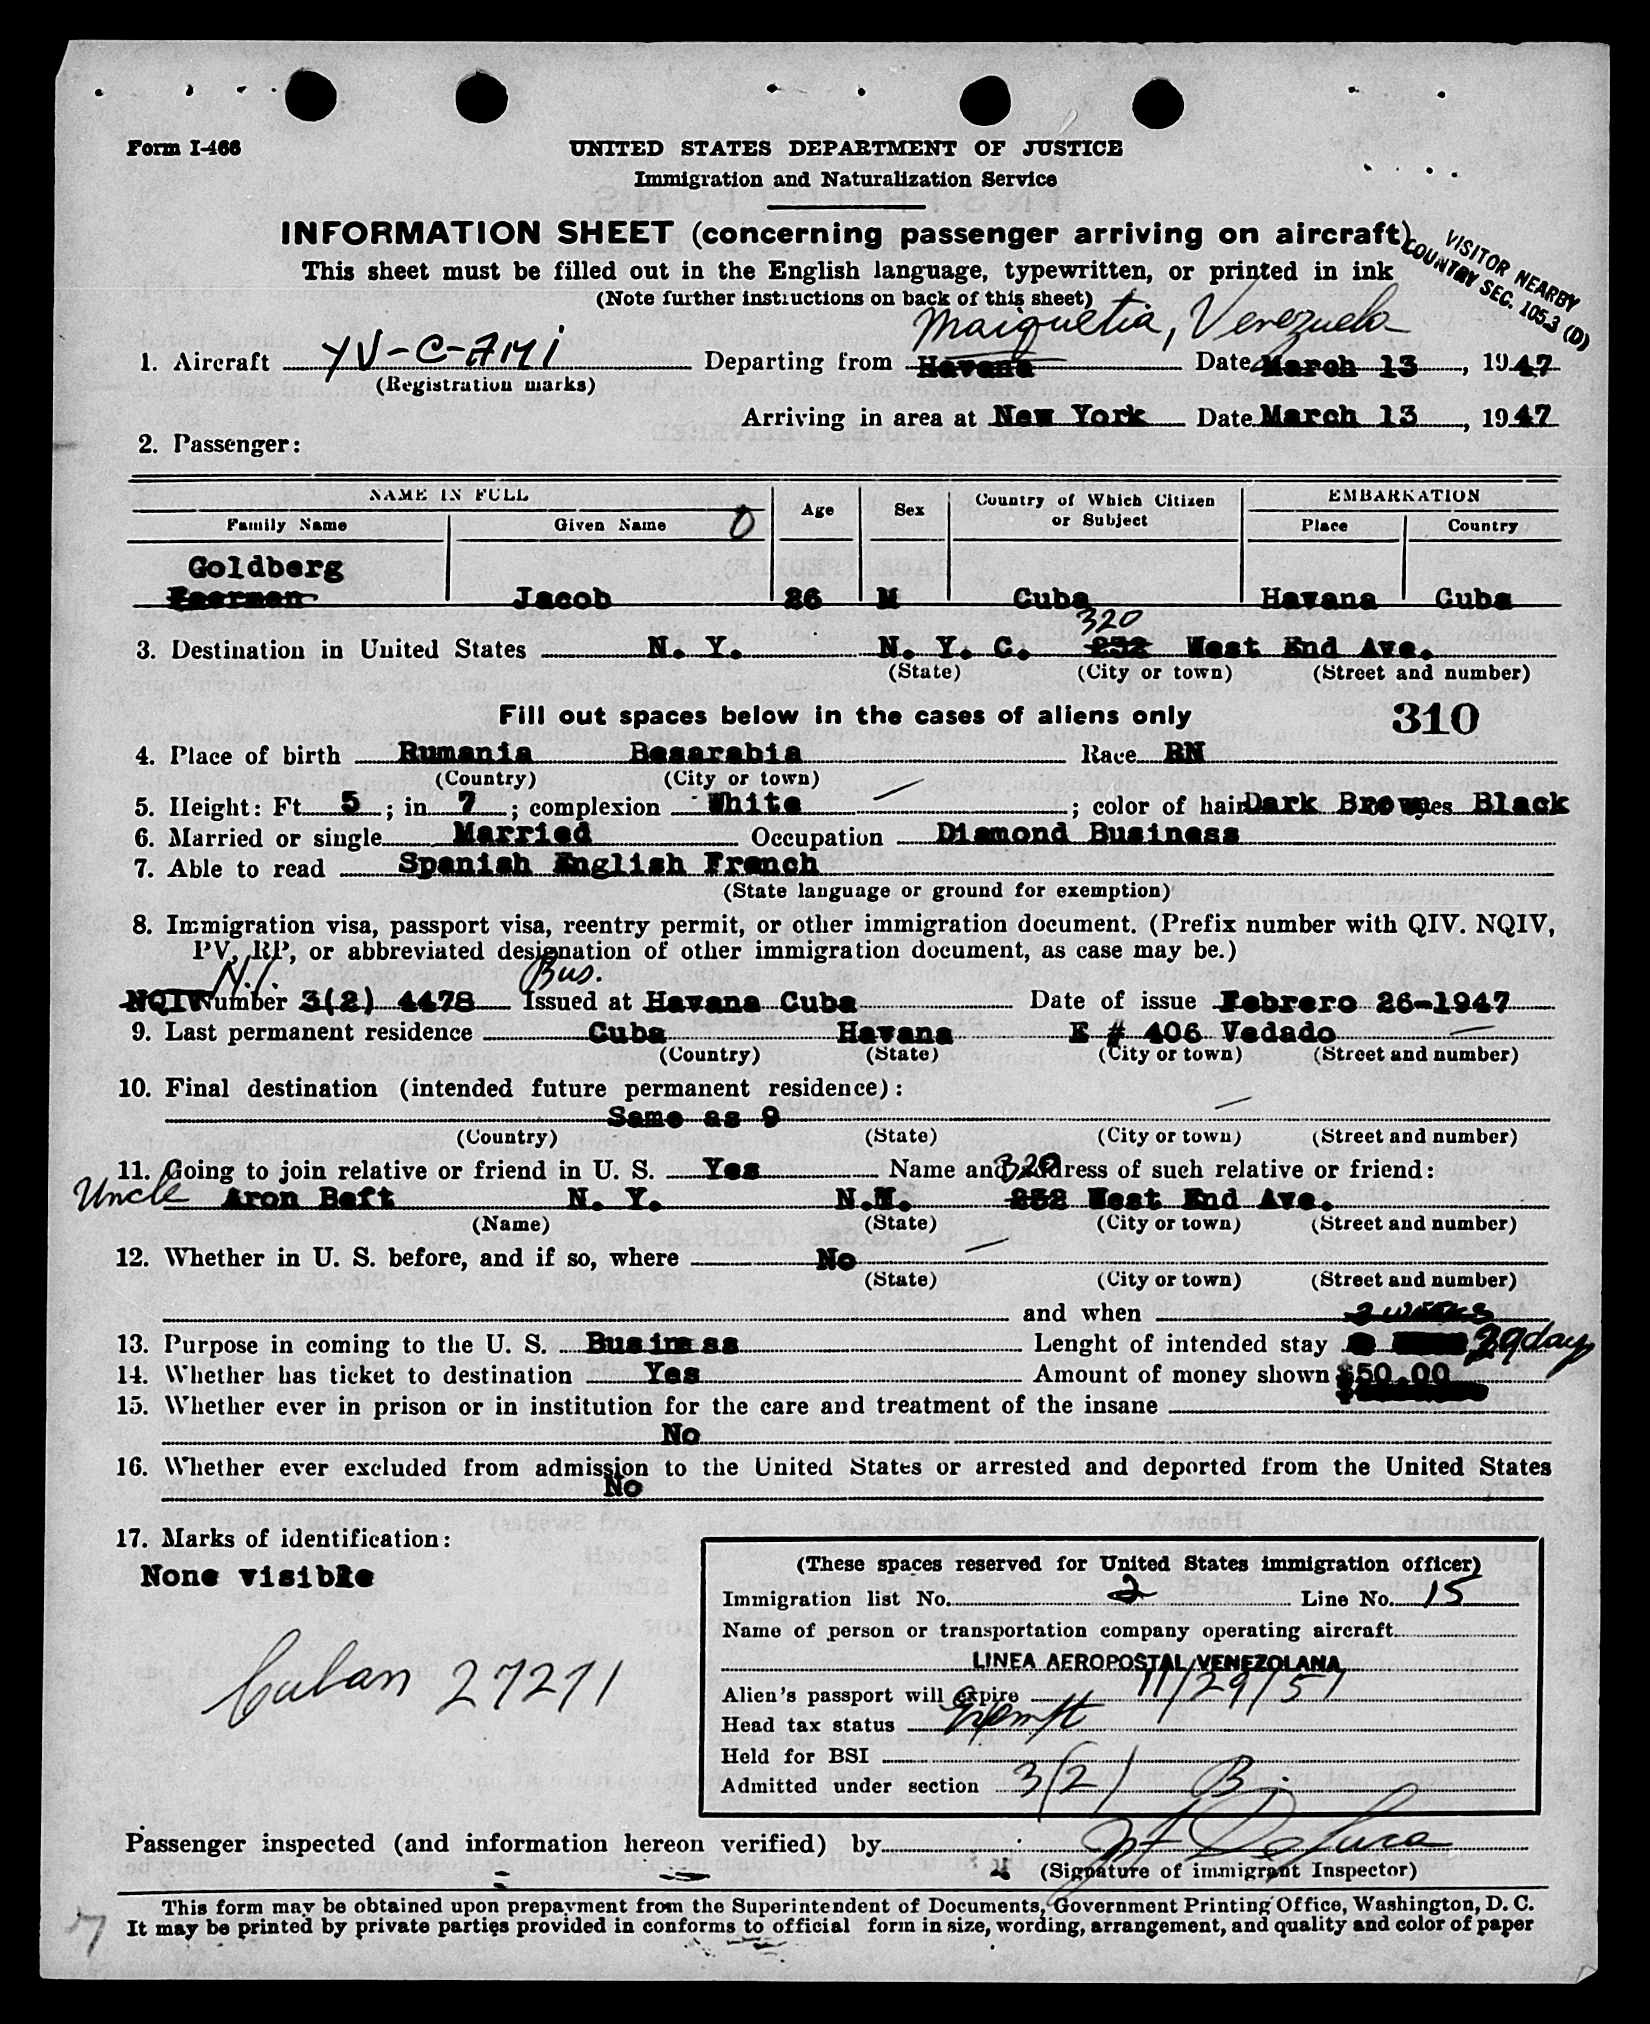 Form I-466
UNITED STATES DEPARTMENT OF JUSTICE
Immigration and Naturalization Service
INFORMATION SHEET (concerning passenger arriving on aircraft)
VISITOR NEARBY
COUNTRY SEC. 105.3 (D)
This sheet must be filled out in the English language, typewritten, or printed in ink
(Note further instructions on back of this sheet)
Maiquetia, Venezuela
1. Aircraft YV-C-AMI Departing from Havana Date March 13, 1947
(Registration marks)
Arriving in area at New York Date March 13, 1947
2. Passenger:
NAME IN FULL Age Sex Country of Which Citizen or Subject EMBARKATION
Family Name Given Name Place Country
Goldberg
Jacob 26 M Cuba Havana Cuba
320
3. Destination in United States N. Y. N. Y. C. 252 West End Ave.
(State) (City or town) (Street and number)
Fill out spaces below in the cases of aliens only 310
4. Place of birth Rumania Besarabia Race RN
(Country) (City or town)
5. Height: Ft. 5; in. 7; complexion White; color of hair Dark Brown eyes Black
6. Married or single Married Occupation Diamond Business
7. Able to read Spanish English French
(State language or ground for exemption)
8. Immigration visa, passport visa, reentry permit, or other immigration document. (Prefix number with QIV. NQIV,
PV, RP, or abbreviated designation of other immigration document, as case may be.)
N.I. Bus.
NQIV Number 3(2) 4478 Issued at Havana Cuba Date of issue Febrero 26-1947
9. Last permanent residence Cuba Havana E # 406 Vedado
(Country) (State) (City or town) (Street and number)
10. Final destination (intended future permanent residence):
Same as 9
(Country) (State) (City or town) (Street and number)
11. Going to join relative or friend in U. S. Yes Name and address of such relative or friend:
320
Uncle Aron Beft N. Y. N.Y. 252 West End Ave.
(Name) (State) (City or town) (Street and number)
12. Whether in U. S. before, and if so, where No
(State) (City or town) (Street and number)
and when
13. Purpose in coming to the U. S. Business Lenght of intended stay 29 days
14. Whether has ticket to destination Yes Amount of money shown $50.00
15. Whether ever in prison or in institution for the care and treatment of the insane
No
16. Whether ever excluded from admission to the United States or arrested and deported from the United States
No
17. Marks of identification:
None visible
Cuban 27271
(These spaces reserved for United States immigration officer)
Immigration list No. 2 Line No. 15
Name of person or transportation company operating aircraft
LINEA AEROPOSTAL VENEZOLANA
Alien's passport will expire 11/29/51
Head tax status Exempt
Held for BSI
Admitted under section 3(2) B.
Passenger inspected (and information hereon verified) by
(Signature of immigrant Inspector)
This form may be obtained upon prepayment from the Superintendent of Documents, Government Printing Office, Washington, D. C.
It may be printed by private parties provided in conforms to official form in size, wording, arrangement, and quality and color of paper